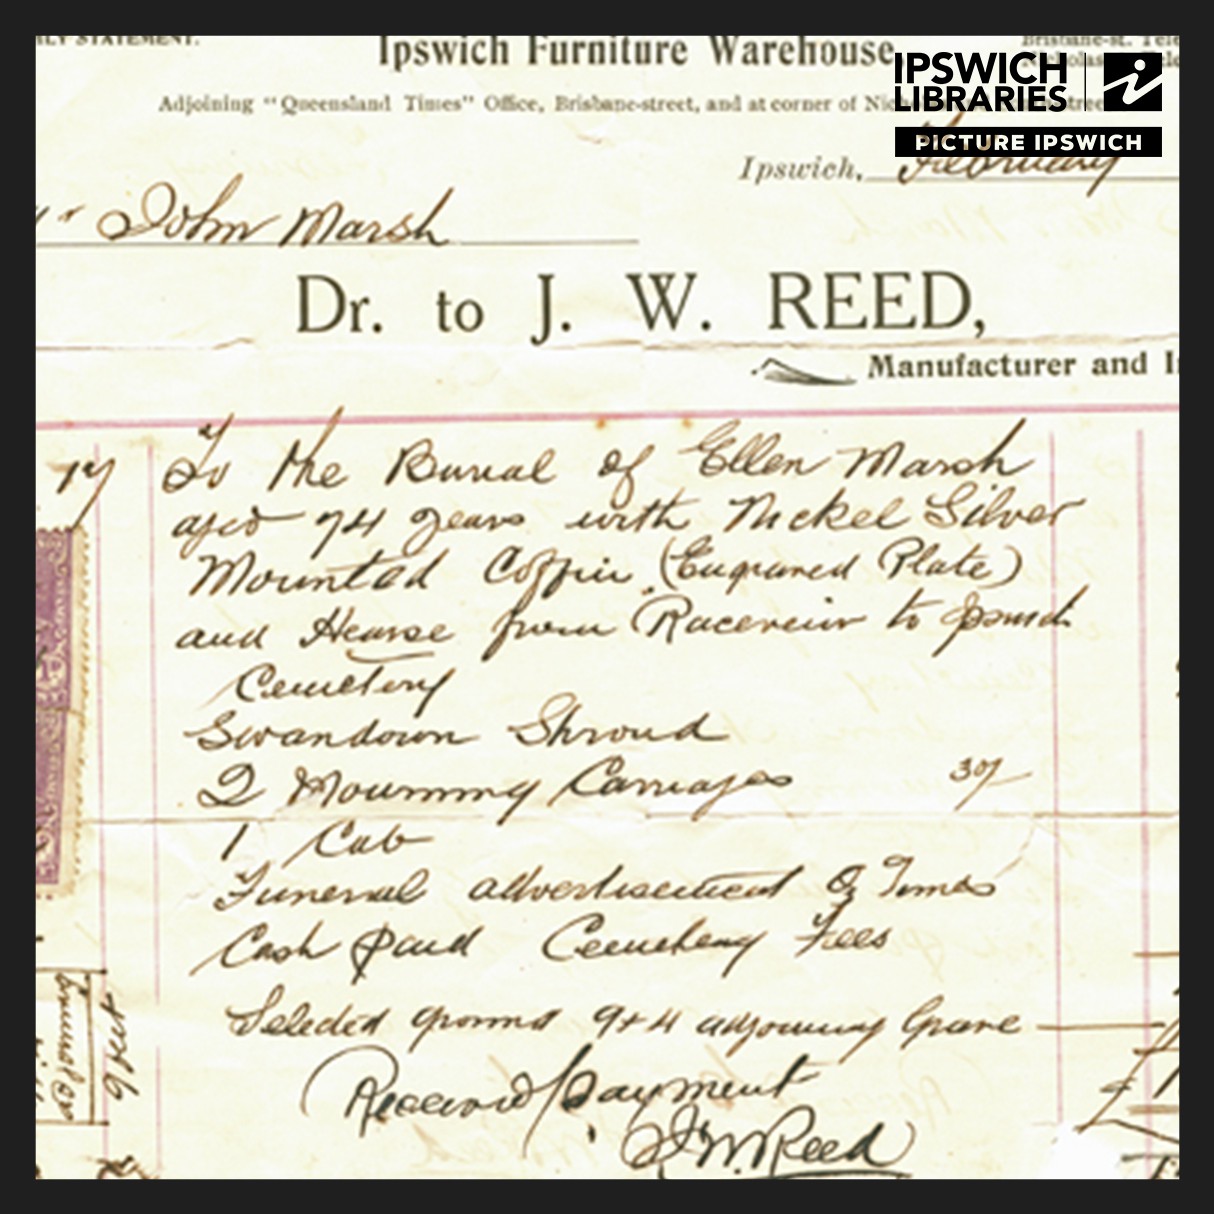 LY STATEMENT.
Ipswich Furniture Warehouse,
Brisbane-st. Tele
Nicholas Tele
IPSWICH
LIBRARIES
PICTURE IPSWICH
Adjoining "Queensland Times" Office, Brisbane-street, and at corner of
Ipswich, February
John Marsh
Dr. to J. W. REED,
Manufacturer and I
17 To the Burial of Ellen Marsh
aged 74 years with Nickel Silver
Mounted Coffin (Engraved Plate)
and Hearse from Raceview to Ipswich
Cemetery
Swandown Shroud
2 Mourning Carriages 30/
1 Cab
Funeral advertisement Q Times
Cash paid Cemetery Fees
Selected ground 9+4 adjoining Grave
Received Payment
J W. Reed